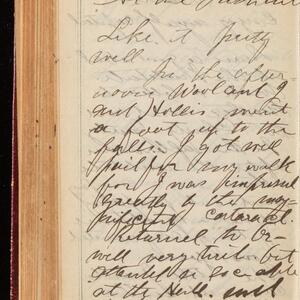 Like it pretty
well
In the after
noon Wool and I
and Hollis went
a foot up to the
falls. I got well
paid for my walk
for I was impressed
greatly by the mag-
nificent cataract.
Returned to
well very tired but
at the Hall. and